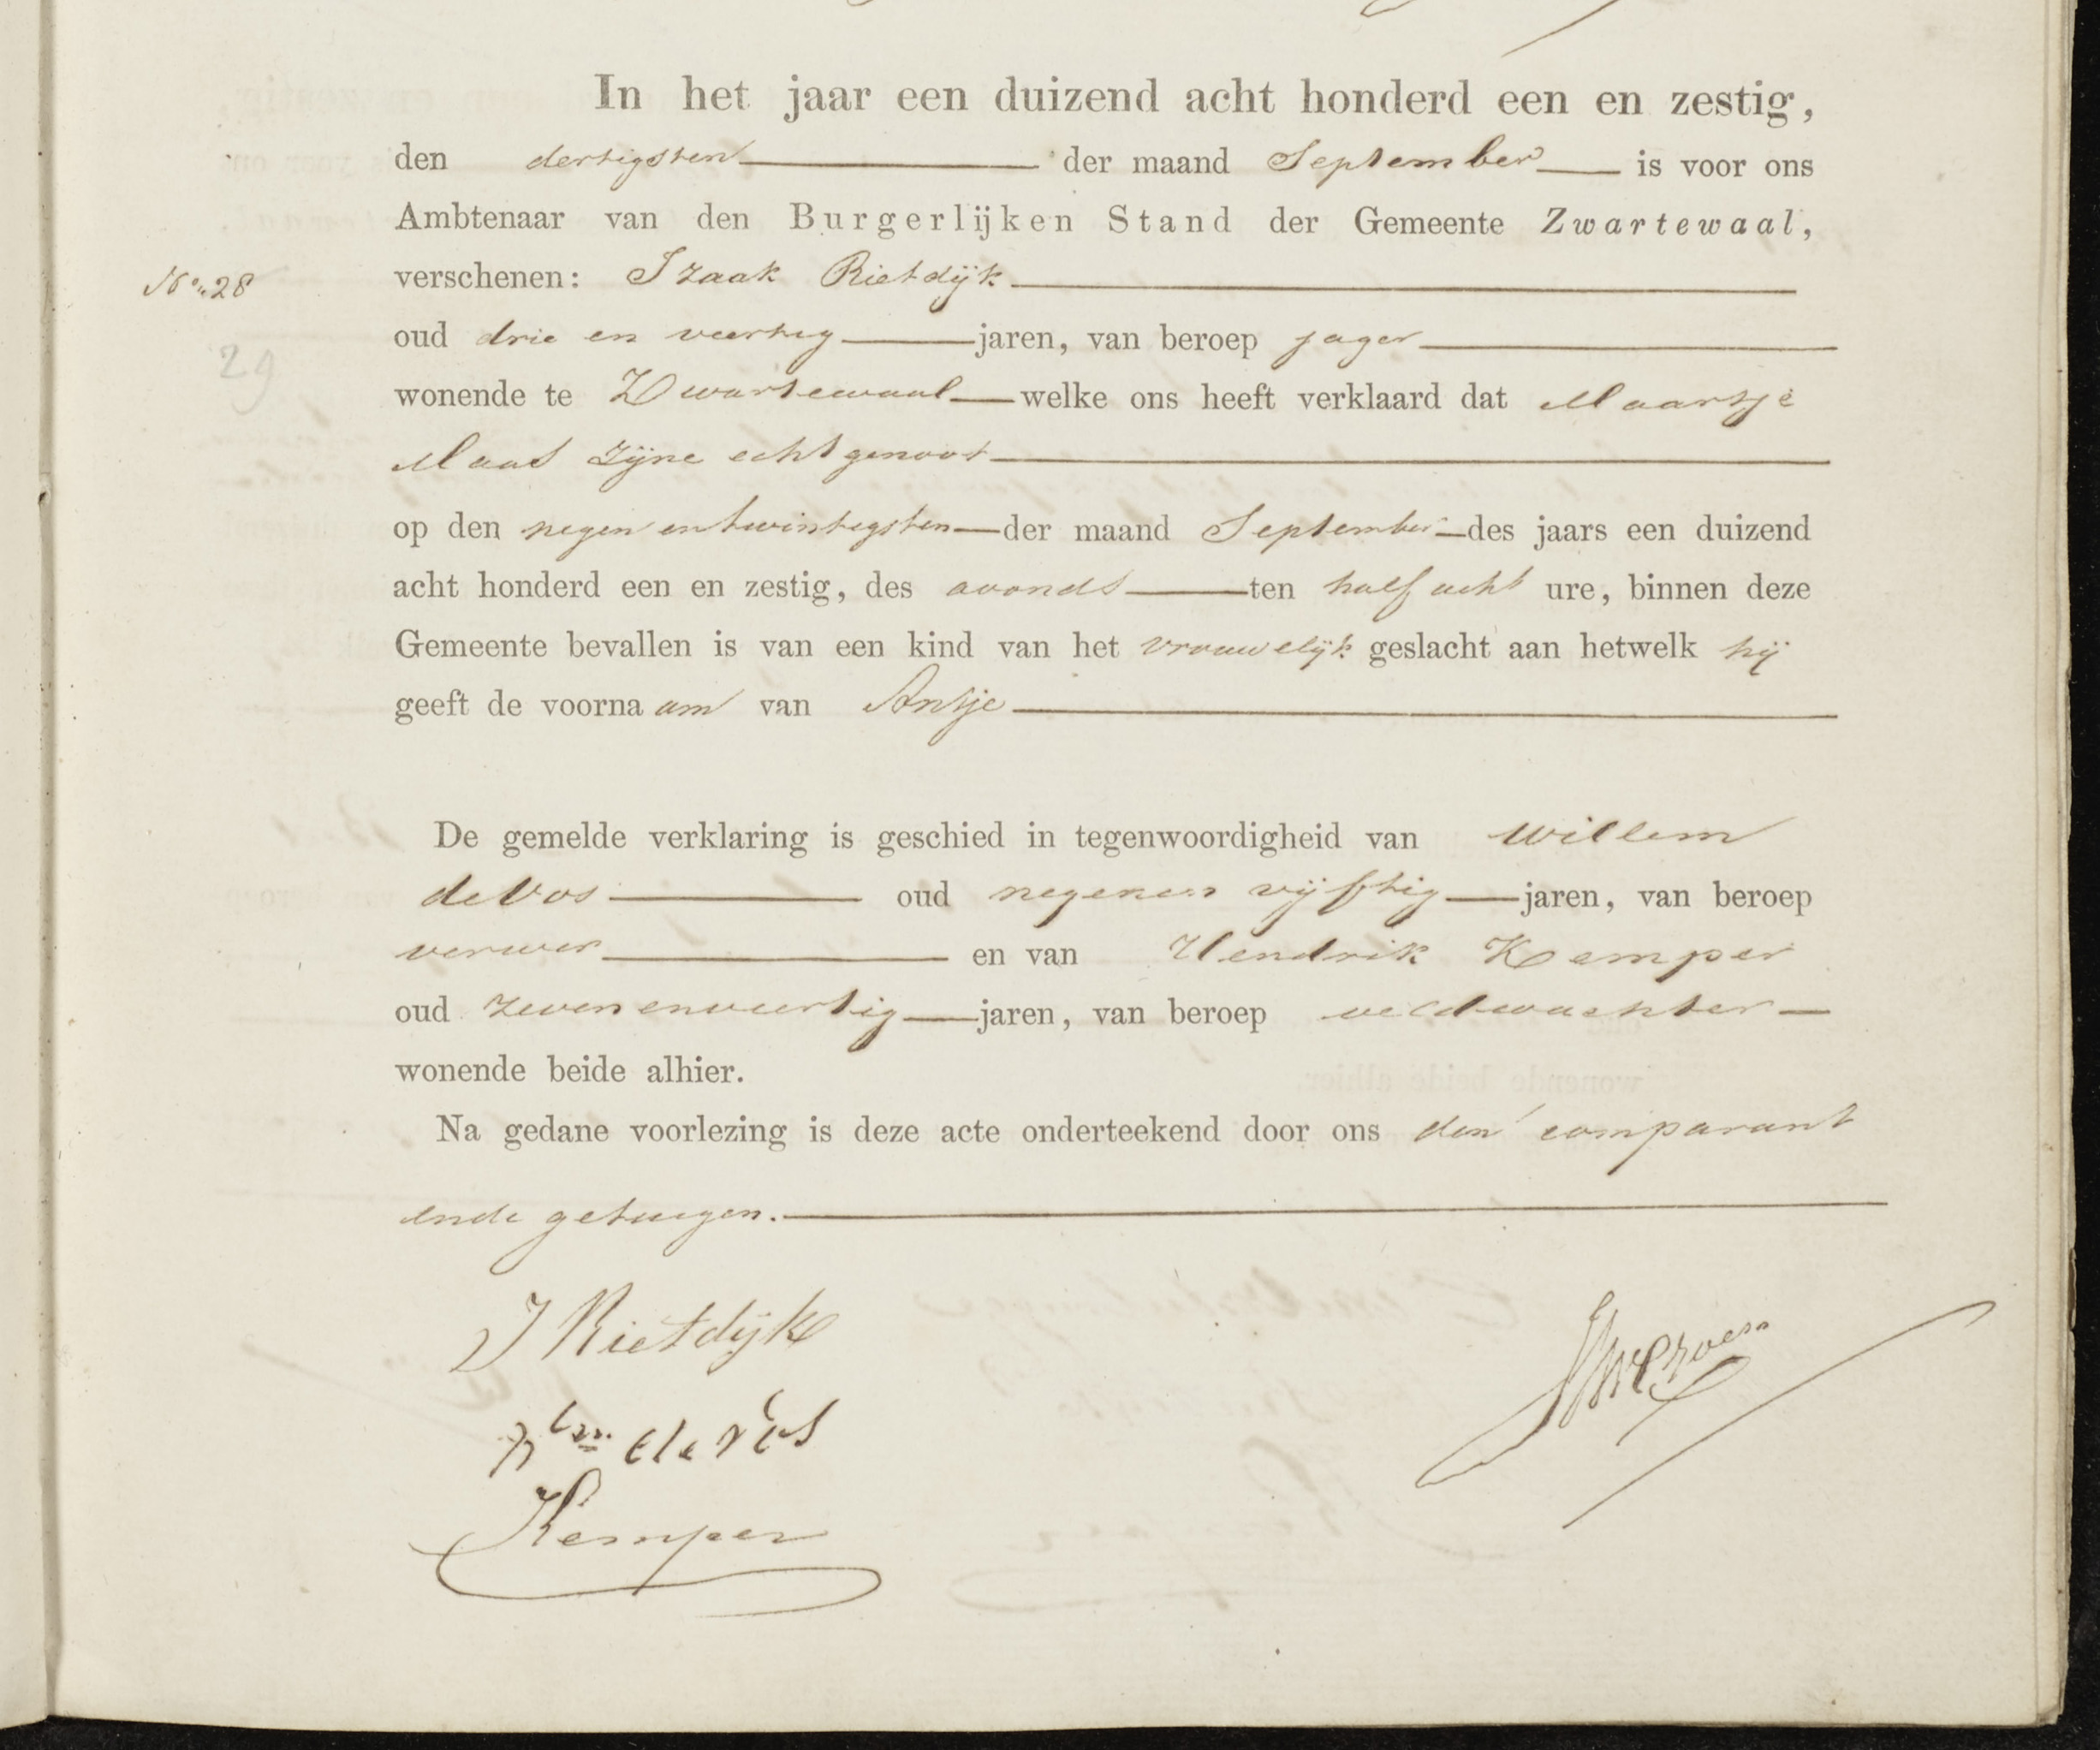 In het jaar een duizend acht honderd een en zestig,
den dertigsten der maand September is voor ons
Ambtenaar van den Burgerlijken Stand der Gemeente Zwartewaal,
No. 28
verschenen: Izaak Rietdijk
oud drie en veertig jaren, van beroep jager
29
wonende te Zwartewaal welke ons heeft verklaard dat Maartje
Maas zijne echtgenoot
op den negen en twintigsten der maand September des jaars een duizend
acht honderd een en zestig, des avonds ten half acht ure, binnen deze
Gemeente bevallen is van een kind van het vrouwelijk geslacht aan hetwelk hij
geeft de voornaam van Antje
De gemelde verklaring is geschied in tegenwoordigheid van Willem
de Vos oud negenen vijftig jaren, van beroep
verwer en van Hendrik Kemper
oud zevenenveertig jaren, van beroep veldwachter
wonende beide alhier.
Na gedane voorlezing is deze acte onderteekend door ons den comparant
en de getuigen.
J Rietdijk
Wm de Vos
Kemper